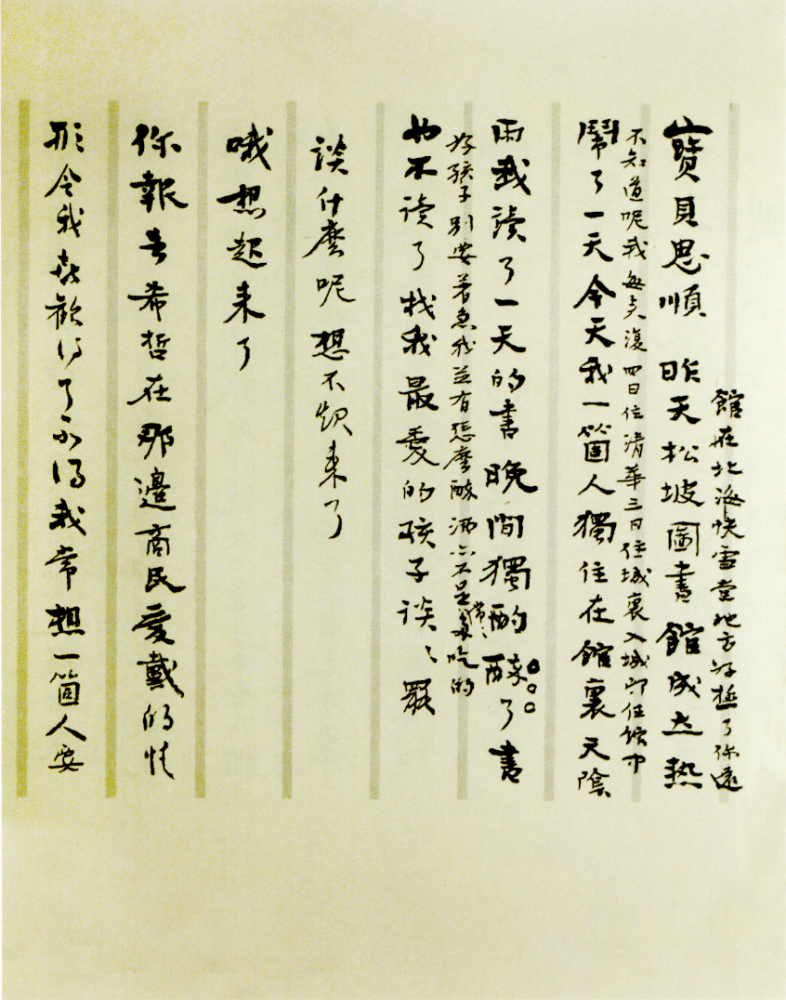 館在北海快雪堂地方好極了你還
寶貝思順 昨天松坡圖書館成立熱
不知道呢我每来復四日住清華三日住城裏入城即住館中
鬧了一天今天我一箇人獨住在館裏天陰
雨我讀了一天的書晚間獨酌醉了書
好孩子別要着急我並有怎麼醉酒亦不是常〻吃的
也不读了找我最愛的孩子談〻罷
談什麼呢想不起来了
哦想起来了
你報告希哲在那邊商民愛戴的情
形令我喜歡得了不得我常想一箇人要